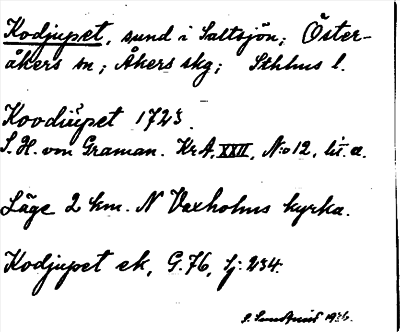 Kodjupet, sund i Saltsjön; Öster-
åkers sn; Åkers skg; Sthlms l.
Koodiüpet 1723.
S. H. von Graman. KrA. XXII, N:o 12, lit. a.
Läge 2 km. N Vaxholms kyrka.
Kodjupet ek, G. 76, lj: 234.
1936.